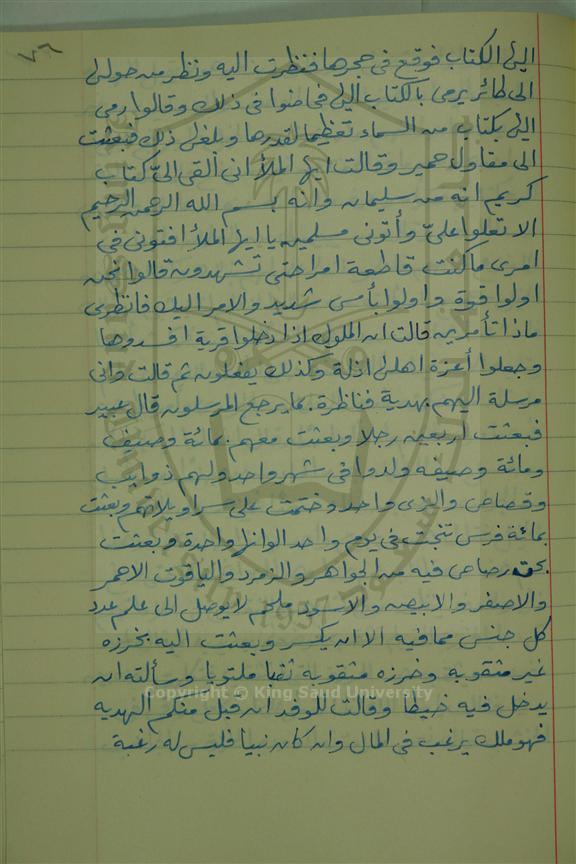 ٧٦
اليها الكتاب فوقع فى حجرها فنظرت اليه ونظر من حولها
الى طائر يرمى بالكتاب اليها فخاضوا فى ذلك وقالوا رمى
اليها بكتاب من السماء تعظيما لقدرها وبلغها ذلك فبعثت
الى مقاول حمير وقالت ايها الملأ انى ألقى الىّ كتاب
كريم انه من سليمان وانه بسم الله الرحمن الرحيم
الا تعلوا علىّ وأتونى مسلمين يا ايها الملأ افتونى فى
امرى ما كنت قاطعة امرا حتى تشهدون قالوا نحن
اولوا قوة واولوا بأس شديد والامر اليك فانظرى
ماذا تأمرين قالت ان الملوك اذا دخلوا قرية افسدوها
وجعلوا أعزة اهلها اذلة وكذلك يفعلون ثم قالت وانى
مرسلة اليهم بهدية فناظرة بما يرجع المرسلون قال عبيد
فبعثت اربعين رجلا وبعثت معهم بمائة وصيف
ومائة وصيفه ولدوا فى شهر واحد ولهم ذوايب
وقصاص والزى واحد وختمت على سراويلاتهم وبعثت
بمائة فرس نتجت فى يوم واحد الوانها واحدة وبعثت
بحق رصاص فيه من الجواهر والزمرد والياقوت الاحمر
والاصفر والابيض والاسود ملحم لا يوصل الى علم عدد
كل جنس مما فيه الا ان يكسر وبعثت اليه بخرزه
غير مثقوبه وخرزه مثقوبه ثقبا ملتويا وسألته ان
يدخل فيه خيطا وقالت للوفد ان قبل منكم الهديه
فهو ملك يرغب فى المال وان كان نبيا فليس له رغبة
Copyright © King Saud University